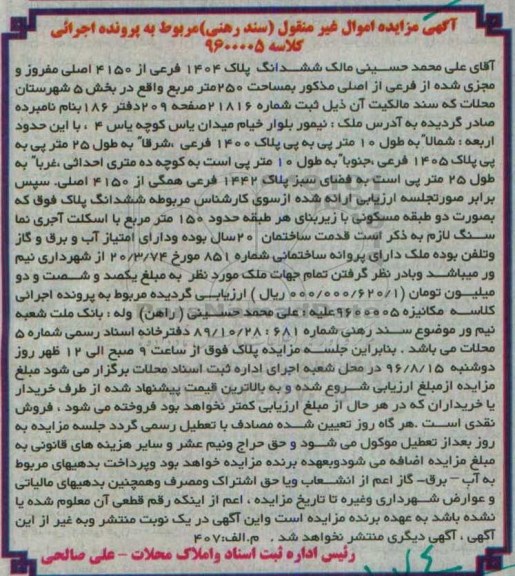 آگهی مزایده اموال غیر منقول (سند رهنی)مربوط به پرونده اجرائی
کلاسه ۹۶۰۰۰۰۵
آقای علی محمد حسینی مالک ششدانگ پلاک ۱۴۰۴ فرعی از ۴۱۵۰ اصلی مفروز و
مجزی شده از فرعی از اصلی مذکور بمساحت ۲۵۰متر مربع واقع در بخش ۵ شهرستان
محلات که سند مالکیت آن ذیل ثبت شماره ۲۱۸۱۶صفحه ۲۰۹دفتر ۱۸۶بنام نامبرده
صادر گردیده به آدرس ملک : نیمور بلوار خیام میدان یاس کوچه یاس ۴ ، با این حدود
اربعه : شمالا" به طول ۱۰ متر پی به پی پلاک ۱۴۰۰ فرعی ،شرقا" به طول ۲۵ متر پی به
پی پلاک ۱۴۰۵ فرعی ،جنوبا" به طول ۱۰ متر پی است به کوچه ده متری احداثی ،غربا" به
طول ۲۵ متر پی است به فضای سبز پلاک ۱۴۴۲ فرعی همگی از ۴۱۵۰ اصلی. سپس
برابر صورتجلسه ارزیابی ارائه شده ازسوی کارشناس مربوطه ششدانگ پلاک فوق که
بصورت دو طبقه مسکونی با زیربنای هر طبقه حدود ۱۵۰ متر مربع با اسکلت آجری نما
سنگ لازم به ذکر است قدمت ساختمان ۲۰سال بوده ودارای امتیاز آب و برق و گاز
وتلفن بوده ملک دارای پروانه ساختمانی شماره ۸۵۱ مورخ ۲۰/۳/۷۴ از شهرداری نیم
ور میباشد وبادر نظر گرفتن تمام جهات ملک مورد نظر به مبلغ یکصد و شصت و دو
میلیون تومان (۰۰۰/۰۰۰/۶۲۰/۱ ریال ) ارزیابی گردیده مربوط به پرونده اجرائی
کلاسه مکانیزه ۹۶۰۰۰۰۵علیه : علی محمد حسینی ( راهن) وله : بانک ملت شعبه
نیم ور موضوع سند رهنی شماره ۶۸۱ : ۸۹/۱۰/۲۸ دفترخانه اسناد رسمی شماره ۵
محلات می باشد . بنابراین جلسه مزایده پلاک فوق از ساعت ۹ صبح الی ۱۲ ظهر روز
دوشنبه ۹۶/۸/۱۵ در محل شعبه اجرای اداره ثبت اسناد محلات برگزار می شود مبلغ
مزایده ازمبلغ ارزیابی شروع شده و به بالاترین قیمت پیشنهاد شده از طرف خریدار
یا خریداران که در هر حال از مبلغ ارزیابی کمتر نخواهد بود فروخته می شود ، فروش
نقدی است .هر گاه روز تعیین شده مصادف با تعطیل رسمی گردد جلسه مزایده به
روز بعداز تعطیل موکول می شود و حق حراج ونیم عشر و سایر هزینه های قانونی به
مبلغ مزایده اضافه می شودوبعهده برنده مزایده خواهد بود وپرداخت بدهیهای مربوط
به آب – برق– گاز اعم از انشعاب ویا حق اشتراک ومصرف وهمچنین بدهیهای مالیاتی
و عوارض شهرداری وغیره تا تاریخ مزایده ، اعم از اینکه رقم قطعی آن معلوم شده یا
نشده باشد به عهده برنده مزایده است واین آگهی در یک نوبت منتشر وبه غیر از این
آگهی ، آگهی دیگری منتشر نخواهد شد . م.الف:۴۰۷
رئیس اداره ثبت اسناد واملاک محلات – علی صالحی